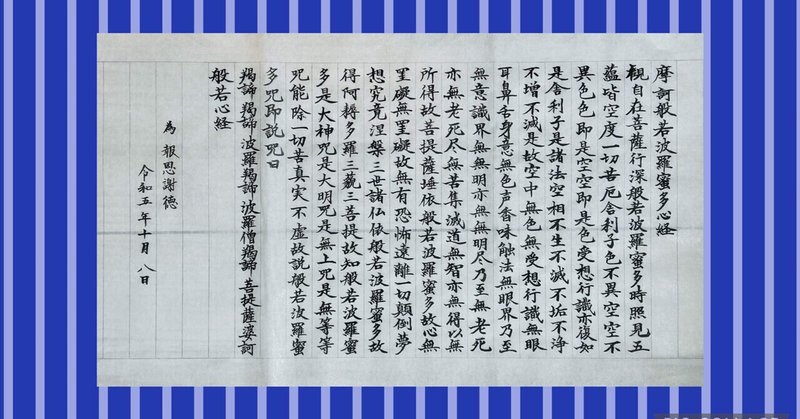 摩訶般若波羅蜜多心経
観自在菩薩行深般若波羅蜜多時照見五
蘊皆空度一切苦厄舎利子色不異空空不
異色色即是空空即是色受想行識亦復如
是舎利子是諸法空相不生不滅不垢不浄
不増不減是故空中無色無受想行識無眼
耳鼻舌身意無色声香味触法無眼界乃至
無意識界無無明亦無無明尽乃至無老死
亦無老死尽無苦集滅道無智亦無得以無
所得故菩提薩埵依般若波羅蜜多故心無
罣礙無罣礙故無有恐怖遠離一切顛倒夢
想究竟涅槃三世諸仏依般若波羅蜜多故
得阿耨多羅三藐三菩提故知般若波羅蜜
多是大神咒是大明咒是無上咒是無等等
咒能除一切苦真実不虚故説般若波羅蜜
多咒即説咒曰
羯諦 羯諦 波羅羯諦 波羅僧羯諦 菩提薩婆訶
般若心経
為 報恩謝徳
令和五年十月八日